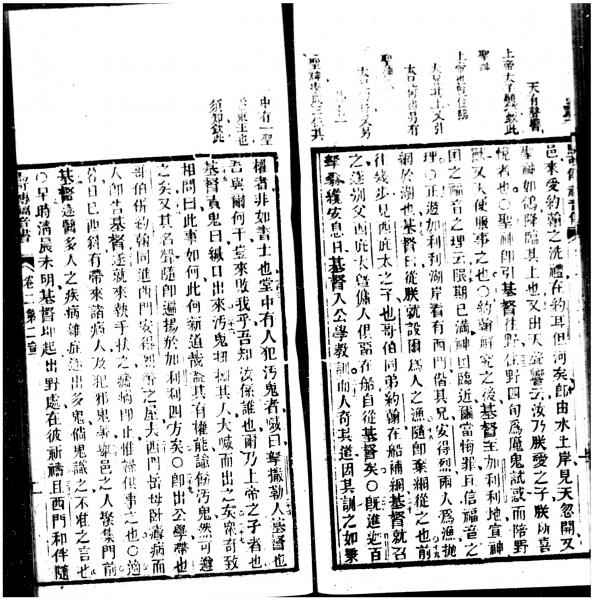 天有聲響
上帝太子顯然欽此
聖神
上帝也顯在臨
邑來受約翰之洗禮在約耳但河矣即由水上岸見天忽開又
聖神如鴿降臨其上也又出天聲響云汝乃朕愛之子朕所喜
悅者也〇聖神即引基督往野在野四旬為魔鬼試惑而陪野
獸又天使服事之也〇約翰解究之後基督至加利利地宣神
國之福音之理云限期已滿神國臨近爾當悔罪且信福音之
理〇正遊加利利湖岸看有西門偕其兄安得烈兩人為漁拋
網於湖也基督曰從朕就設爾為人之漁隨即棄網從之也前
往幾步見西庇太之子也哥伯同弟約翰在船補網基督就召
之速別父西庇太暨傭人俱留在船自從基督矣〇既進迦百
安息日基督入公學教訓而人奇其道因其訓之如秉
中有一聖
須知欽此
權者非如書士也堂中有人犯汚鬼者喊曰拏撒勒人基督也
吾與爾何干豈來敗我乎吾知汝係誰也爾乃上帝之子者也
基督責鬼曰緘口出來汚鬼拋捆其人大喊而出之矣衆奇致
相問曰此事如何此何新道哉蓋其有權能諭飭汚鬼然可避
之矣又其名聲隨即遍揚於加利利四方矣〇即出公學偕也
哥伯併約翰同進西門安得烈等之屋夫西門岳母臥瘧病而
人即告基督遂就來執手扶之瘧病即止惟供事之也〇適
於日已西斜有帶來諸病人及犯邪鬼等舉邑之人聚集門前
基督遂醫多人之疾病雜症逐出多鬼倘鬼識之不准之言也
〇早時清晨未明基督即起出野處在彼祈禱且西門和伴隨
卷二第二章